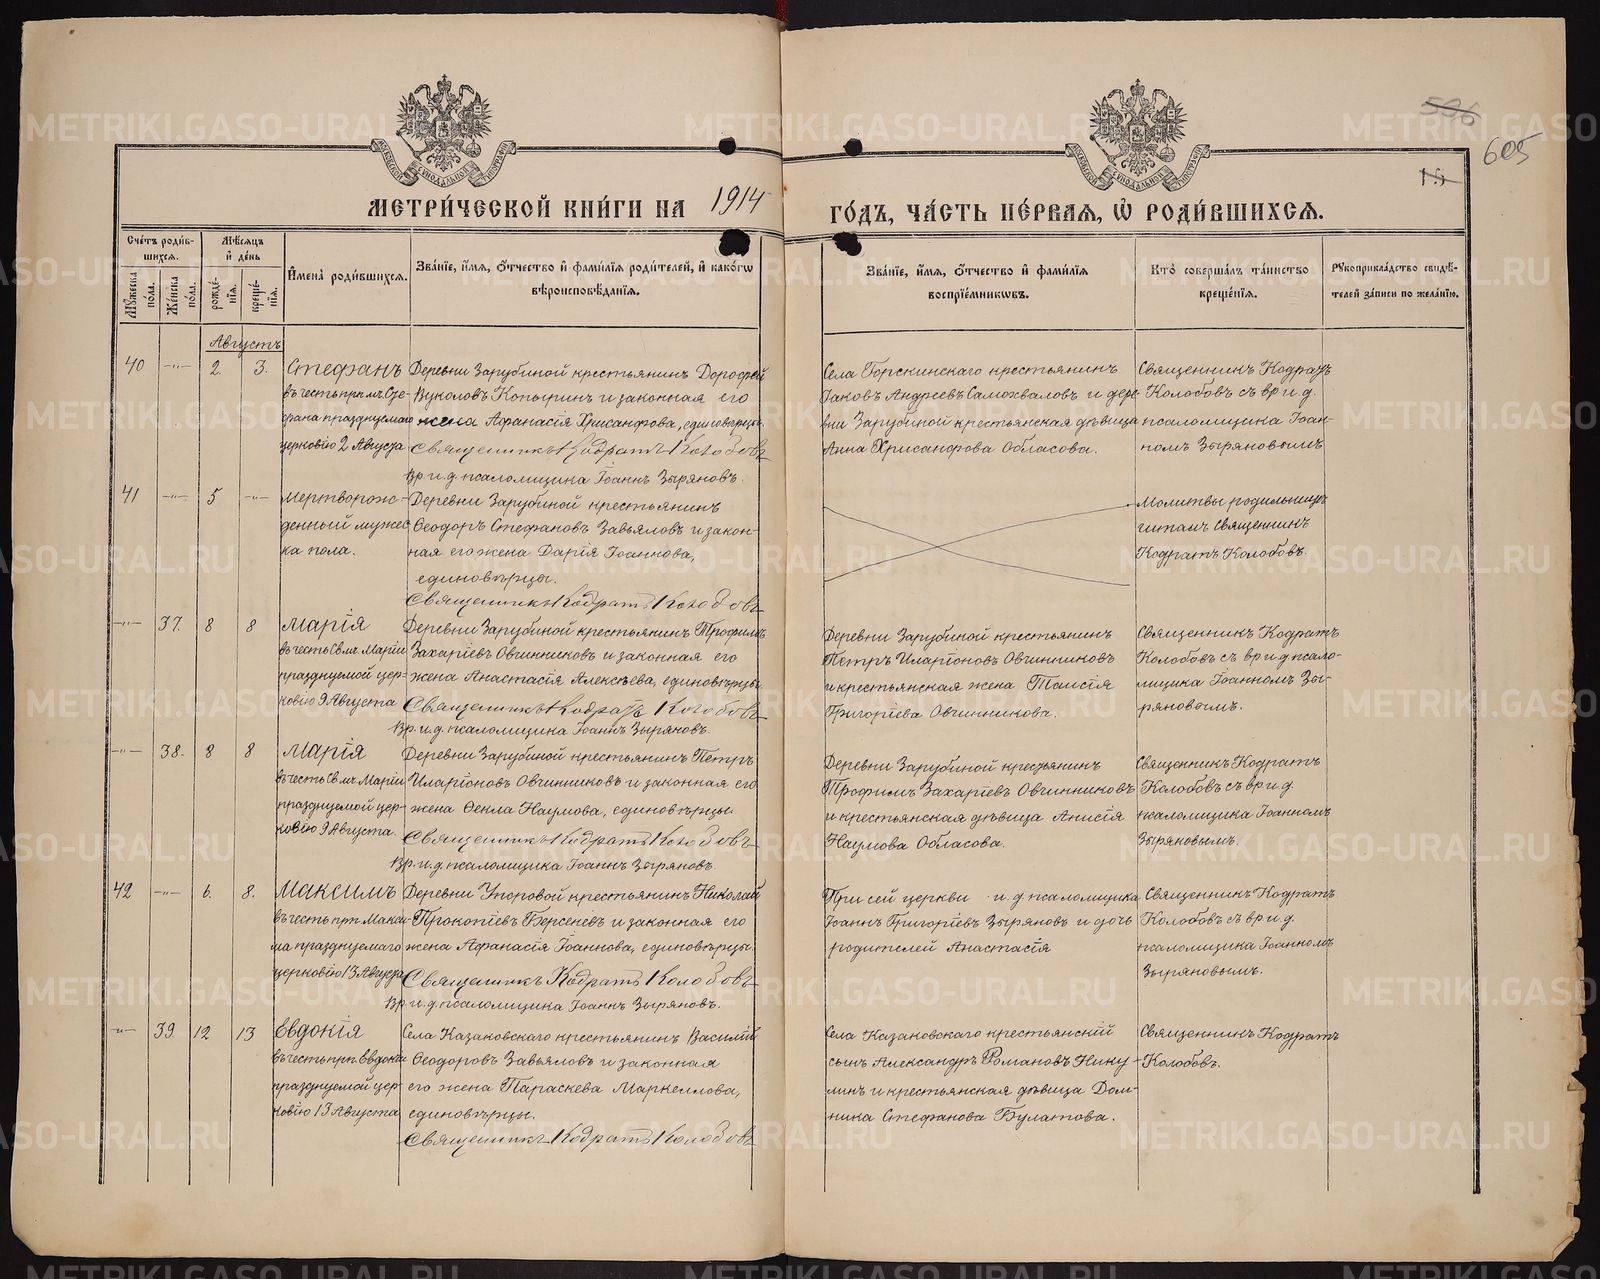 506
605
15
МОСКОВСКОЙ СѴНОДАЛЬНОЙ ТИПОГРАФІИ
МОСКОВСКОЙ СѴНОДАЛЬНОЙ ТИПОГРАФІИ
МЕТРИ́ЧЕСКОЙ КНИ́ГИ НА 1914 ГО́ДЪ, ЧА́СТЬ ПЕ́РВАѦ, Ѽ РОДИ́ВШИХСѦ.
Сче́тъ роди́в-
шихсѧ.
Мѣ́сѧцъ
и҆ де́нь
Мꙋ́жеска
по́ла.
Же́нска
по́ла.
рожде́-
нїѧ.
креще́-
нїѧ.
И҆мена̀ роди́вшихсѧ.
Зва́нїе, и҆́мѧ, ѻ҆́тчество и҆ фами́лїѧ роди́телей, и҆ како́гѡ
вѣроисповѣ́данїѧ.
Зва́нїе, и҆́мѧ, ѻ҆́тчество и҆ фами́лїѧ
воспрїе́мникѡвъ.
Кто̀ соверша́лъ та́инство
креще́нїѧ.
Рꙋкоприкла́дство свидѣ́-
телей за́писи по жела́нїю.
Августъ
40 —"— 2. 3.
Стефанъ
въ честь прп. мч. Сте-
фана празднуемаго
церковію 2 Августа
Деревни Зарубиной крестьянинъ Дорофей
Вуколовъ Копыринъ и законная его
жена Афанасія Хрисанфова, единовѣрцы
Священникъ Кодратъ Колобовъ
Вр. и. д. псаломщика Іоаннъ Зыряновъ.
Села Горскинскаго крестьянинъ
Іаковъ Андреевъ Самохваловъ и дерев-
вни Зарубиной крестьянская дѣвица
Анна Хрисанфова Обласова.
Священникъ Кодратъ
Колобовъ съ вр. и. д.
псаломщика Іоан-
номъ Зыряновымъ
41 —"— 5 —"—
Мертворож-
денный мужес-
ка пола.
Деревни Зарубиной крестьянинъ
Ѳеодоръ Стефановъ Завьяловъ и закон-
ная его жена Дарія Іоаннова,
единовѣрцы.
Священникъ Кодратъ Колобовъ
Молитвы родильницѣ
читалъ священникъ
Кодратъ Колобовъ.
—"— 37. 8 8
Марія
въ честь св. мч. Маріи
празднуемой цер-
ковію 9 Августа
Деревни Зарубиной крестьянинъ Трофимъ
Захаріевъ Овчинниковъ и законная его
жена Анастасія Алексѣева, единовѣрцы.
Священникъ Кодратъ Колобовъ
Вр. и. д. псаломщика Іоаннъ Зыряновъ.
Деревни Зарубиной крестьянинъ
Петръ Иларіоновъ Овчинниковъ
и крестьянская жена Таисія
Григоріева Овчинникова.
Священникъ Кодратъ
Колобовъ съ вр. и. д. псало-
мщика Іоанномъ Зы-
ряновымъ.
—"— 38. 8 8
Марія
въ честь св. мч. Маріи
празднуемой цер-
ковію 9 Августа.
Деревни Зарубиной крестьянинъ Петръ
Иларіоновъ Овчинниковъ и законная его
жена Ѳекла Наумова, единовѣрцы.
Священникъ Кодратъ Колобовъ
Вр. и. д. псаломщика Іоаннъ Зыряновъ.
Деревни Зарубиной крестьянинъ
Трофимъ Захаріевъ Овчинниковъ
и крестьянская дѣвица Анисія
Наумова Обласова.
Священникъ Кодратъ
Колобовъ съ вр. и. д.
псаломщика Іоанномъ
Зыряновымъ.
42 —"— 6. 8.
Максимъ
въ честь прп. Макси-
ма празднуемаго
церковію 13 Августа
Деревни Упоровой крестьянинъ Николай
Прокопіевъ Берсеневъ и законная его
жена Афанасія Іоаннова, единовѣрцы.
Священникъ Кодратъ Колобовъ
Вр. и. д. псаломщика Іоаннъ Зыряновъ.
При сей церкви и. д. псаломщика
Іоаннъ Григоріевъ Зыряновъ и дочь
родителей Анастасія
Священникъ Кодратъ
Колобовъ съ вр. и. д.
псаломщика Іоанномъ
Зыряновымъ.
—"— 39 12 13
Евдокія
въ честь прп. Евдокіи
празднуемой цер-
ковію 13 Августа
Села Казаковскаго крестьянинъ Василій
Ѳеодоровъ Завьяловъ и законная
его жена Параскева Маркеллова,
единовѣрцы.
Священникъ Кодратъ Колобовъ
Села Казаковскаго крестьянскій
сынъ Александръ Романовъ Нику-
линъ и крестьянская дѣвица Дом-
ника Стефанова Булатова.
Священникъ Кодратъ
Колобовъ.
METRIKI.GASO-URAL.RU